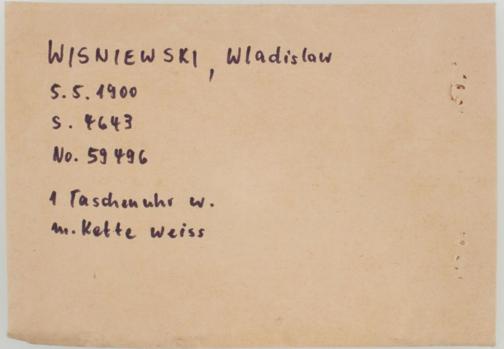 WISNIEWSKI, Wladislaw
5.5.1900
S. 4643
No. 59496
1 Taschenuhr w.
m. Kette weiss